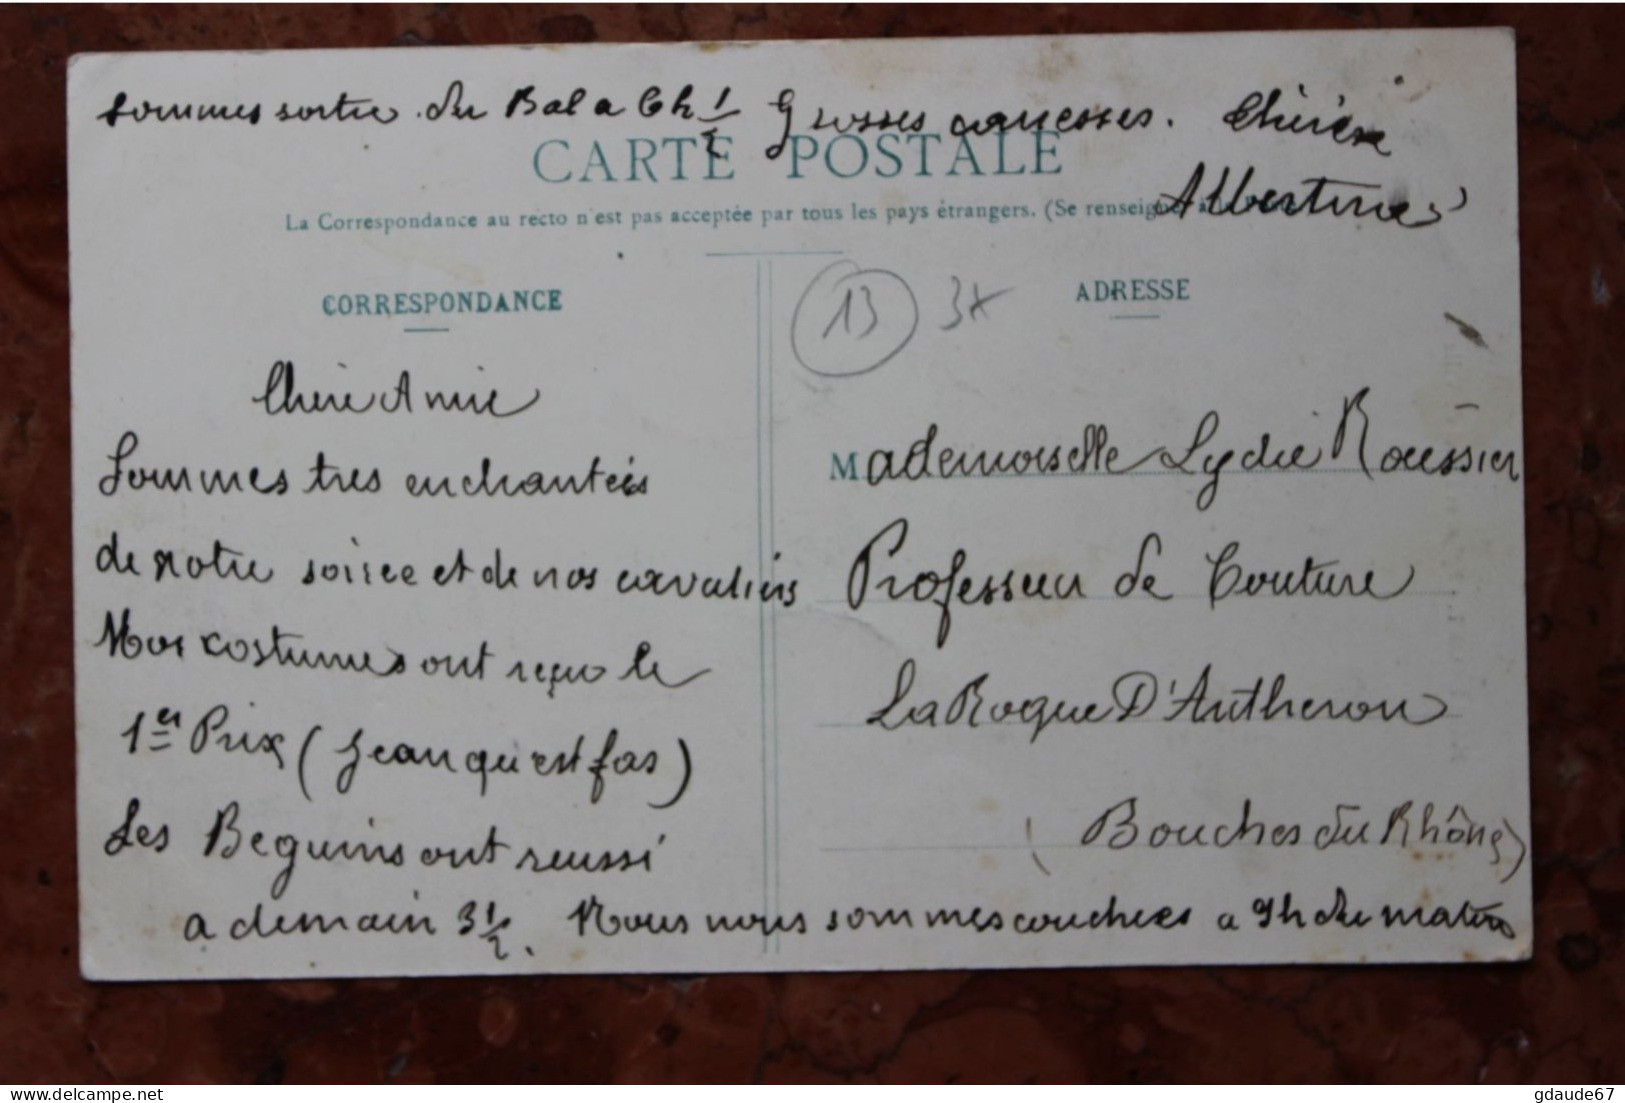 Sommes sortie du Bal a 6h 1/2 Grosses caresses. Thérèse
Albertine
CARTE POSTALE
La Correspondance au recto n'est pas acceptée par tous les pays étrangers. (Se renseigner à la
CORRESPONDANCE
13 3x
ADRESSE
Chère Amie
Sommes tres enchantées
de notre soiree et de nos cavaliers
Nos costumes ont reçu le
1er Prix (Jean qui est fas)
Les Beguins ont reussi
a demain 3 1/2. Nous nous sommes couchees a 9h du matin
Mademoiselle Lydie Roussier
Professeur de Couture
La Roque D'Antheron
(Bouches du Rhône)
delcampe.net
gdaude67